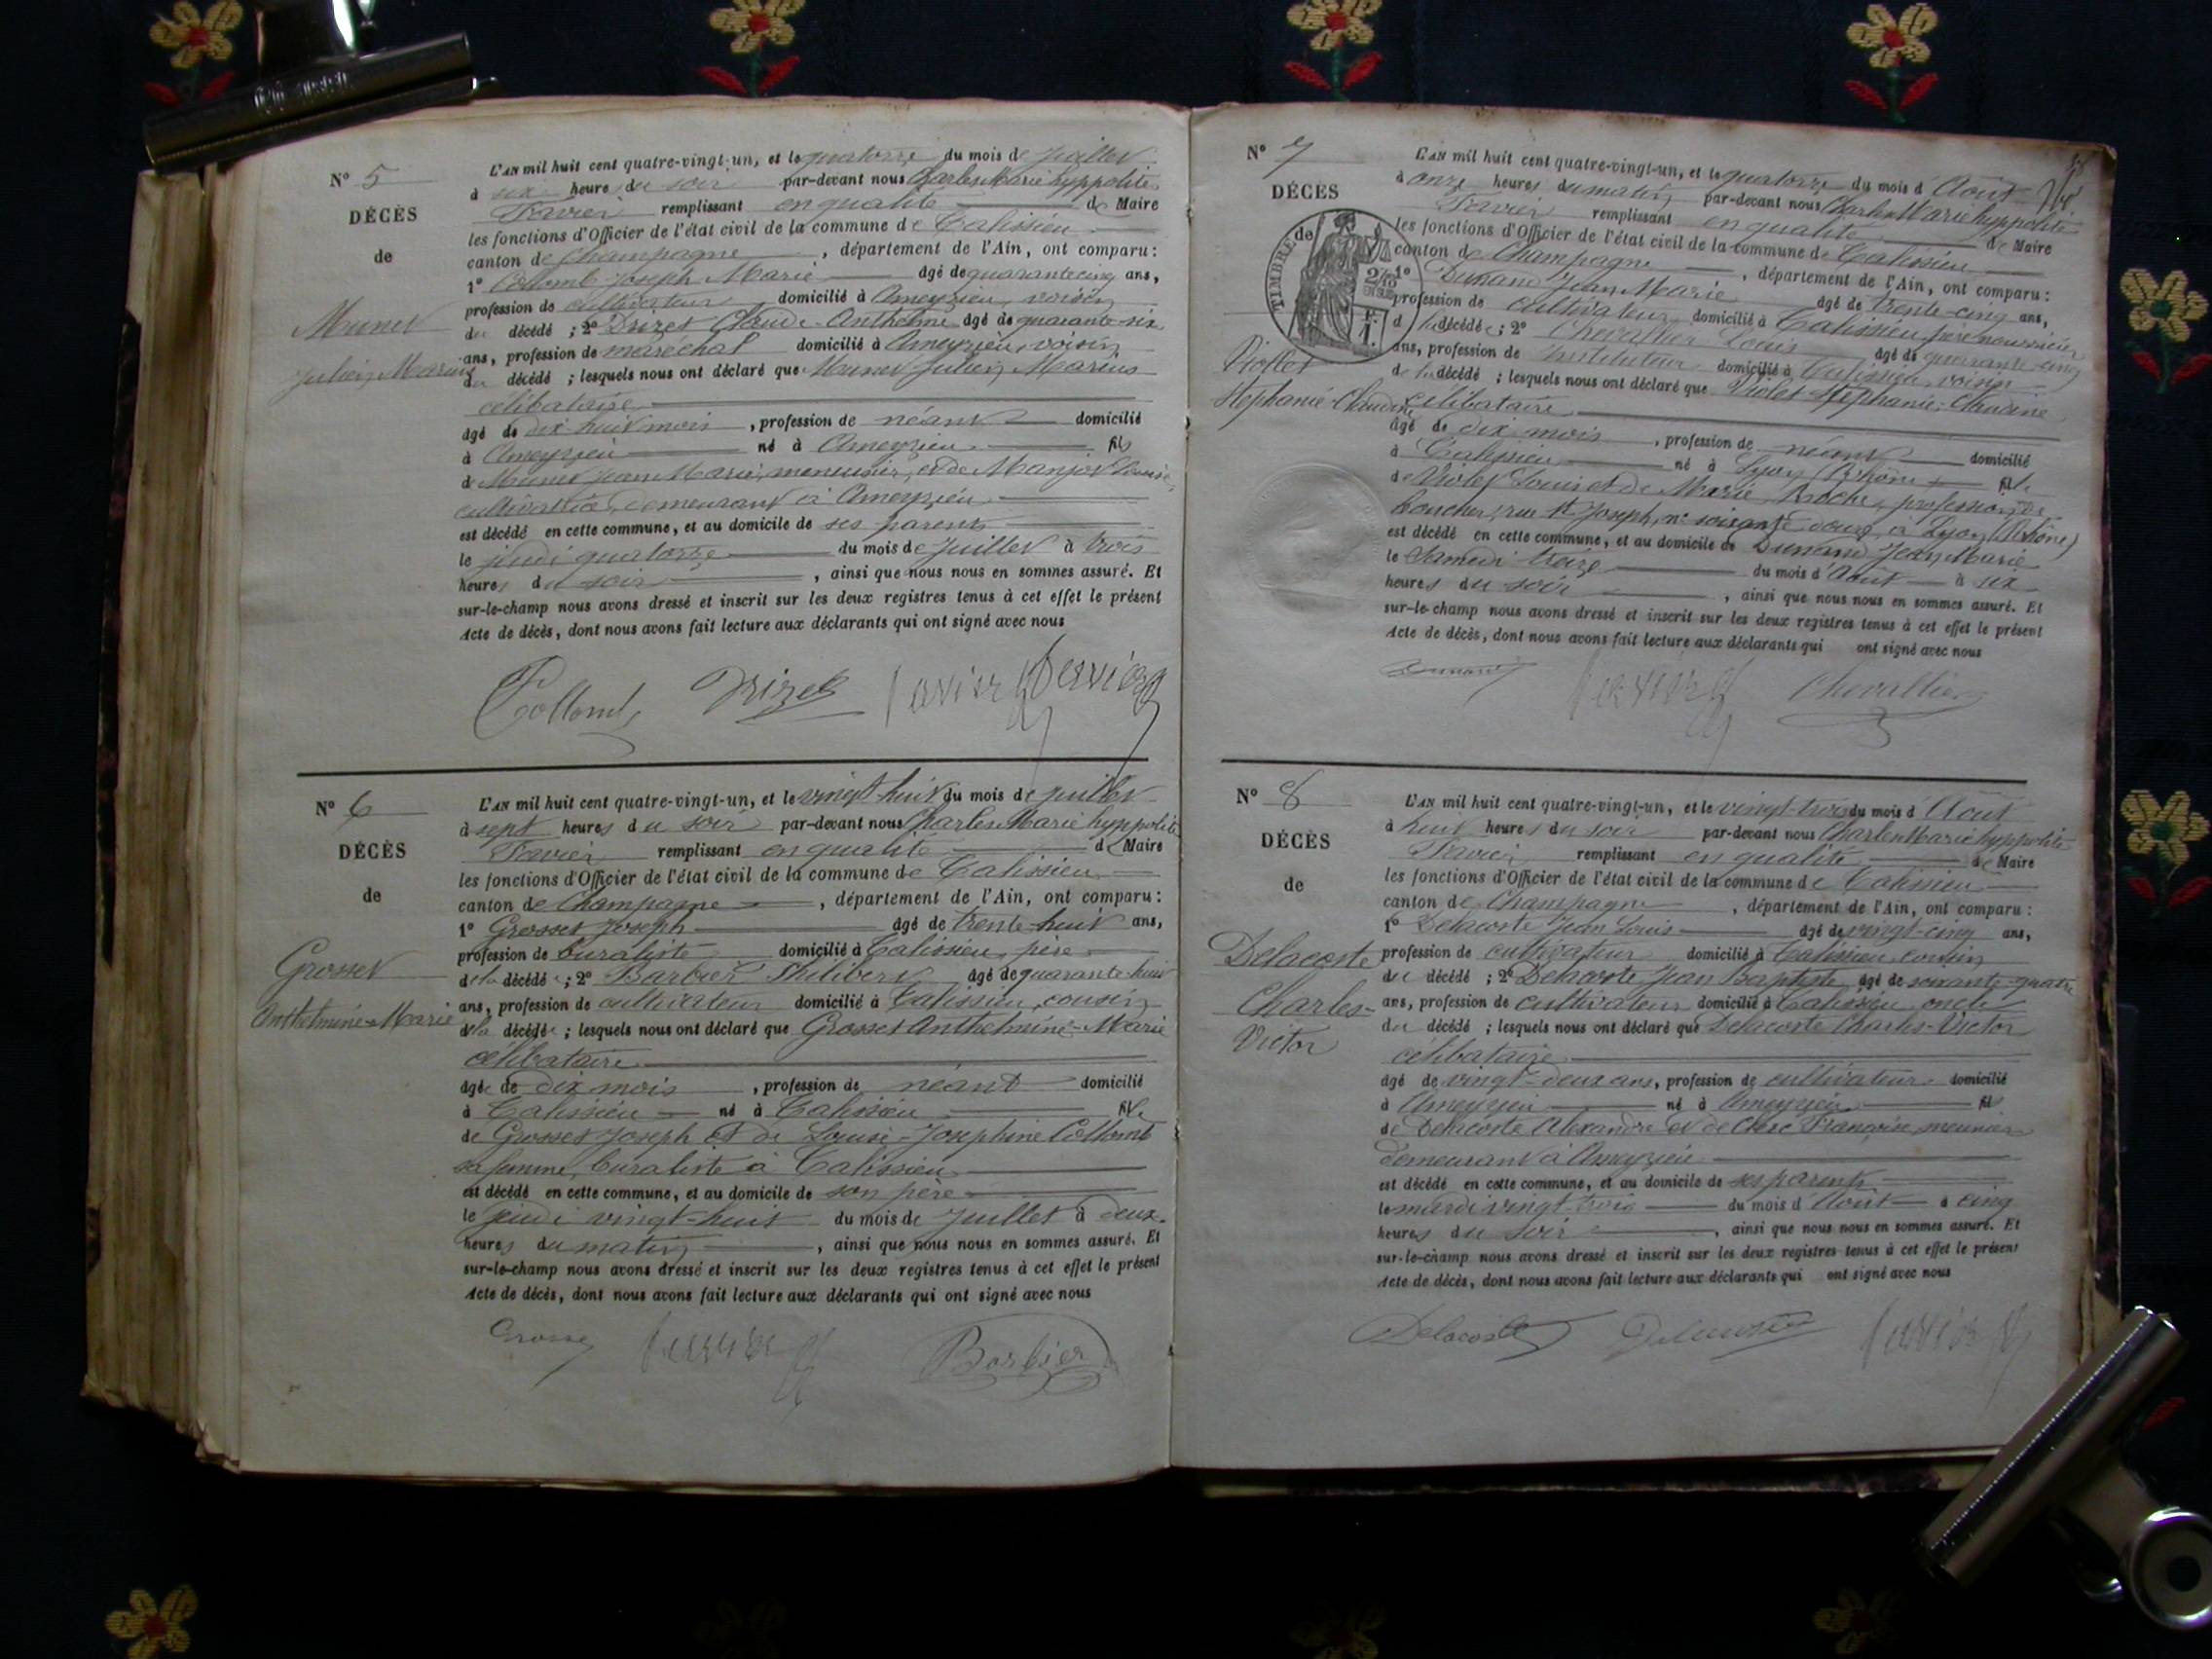 N° 5
DÉCÈS
de
Munet
Julien Marius
L'AN mil huit cent quatre-vingt-un, et le quatorze du mois de juillet
à six heures du soir par-devant nous Charles Marie hyppolite
Favier remplissant en qualité de Maire
les fonctions d'Officier de l'état civil de la commune de Talissieu
canton de Champagne, département de l'Ain, ont comparu :
1° Collomb Joseph Marie âgé de quarante cinq ans,
profession de cultivateur domicilié à Ameyzieu, voisin
du décédé ; 2° Drizet Claude Anthelme âgé de quarante-six
ans, profession de maréchal domicilié à Ameyzieu, voisin
du décédé ; lesquels nous ont déclaré que Munet Julien Marius
célibataire
âgé de dix huit mois, profession de néant domicilié
à Ameyzieu né à Ameyzieu fils
de Munet Jean Marie, menuisier, et de Manjot Louise,
cultivatrice, demeurant à Ameyzieu
est décédé en cette commune, et au domicile de ses parents
le jeudi quatorze du mois de juillet à trois
heures du soir, ainsi que nous nous en sommes assuré. Et
sur-le-champ nous avons dressé et inscrit sur les deux registres tenus à cet effet le présent
Acte de décès, dont nous avons fait lecture aux déclarants qui ont signé avec nous
Collomb Drizet Favier
N° 6
DÉCÈS
de
Grosset
Anthelmine-Marie
L'AN mil huit cent quatre-vingt-un, et le vingt-huit du mois de juillet
à sept heures du soir par-devant nous Charles Marie hyppolite
Favier remplissant en qualité de Maire
les fonctions d'Officier de l'état civil de la commune de Talissieu
canton de Champagne, département de l'Ain, ont comparu :
1° Grosset Joseph âgé de trente-huit ans,
profession de buraliste domicilié à Talissieu, père
de la décédée ; 2° Barbier Philibert âgé de quarante-huit
ans, profession de cultivateur domicilié à Talissieu, cousin
de la décédée ; lesquels nous ont déclaré que Grosset Anthelmine-Marie
célibataire
âgée de dix mois, profession de néant domicilié
à Talissieu né à Talissieu fille
de Grosset Joseph et de Louise-Josephine Collomb
sa femme, buraliste à Talissieu
est décédé en cette commune, et au domicile de son père
le jeudi vingt-huit du mois de juillet à deux
heures du matin, ainsi que nous nous en sommes assuré. Et
sur-le-champ nous avons dressé et inscrit sur les deux registres tenus à cet effet le présent
Acte de décès, dont nous avons fait lecture aux déclarants qui ont signé avec nous
Grosset Favier Barbier
N° 7
DÉCÈS
de
TIMBRE
Violet
Stéphanie-Claudine
L'AN mil huit cent quatre-vingt-un, et le quatorze du mois d'Août
à onze heures du matin par-devant nous Charles Marie hyppolite
Favier remplissant en qualité de Maire
les fonctions d'Officier de l'état civil de la commune de Talissieu
canton de Champagne, département de l'Ain, ont comparu :
1° Dunand Jean Marie âgé de trente-cinq ans,
profession de cultivateur domicilié à Talissieu, père nourricier
de la décédée ; 2° Chevallier Louis âgé de quarante-cinq
ans, profession de Instituteur domicilié à Talissieu, voisin
de la décédée ; lesquels nous ont déclaré que Violet Stéphanie-Claudine
célibataire
âgé de dix mois, profession de néant domicilié
à Talissieu né à Lyon (Rhône) fille
de Violet Louis et de Marie Roche, profession de
boucher, rue St Joseph, n° soixante douze, à Lyon (Rhône)
est décédé en cette commune, et au domicile de Dunand Jean Marie
le Samedi treize du mois d'Août à six
heures du soir, ainsi que nous nous en sommes assuré. Et
sur-le-champ nous avons dressé et inscrit sur les deux registres tenus à cet effet le présent
Acte de décès, dont nous avons fait lecture aux déclarants qui ont signé avec nous
Dunand Favier Chevallier
N° 8
DÉCÈS
de
Delacoste
Charles-
Victor
L'AN mil huit cent quatre-vingt-un, et le vingt-trois du mois d'Août
à huit heures du soir par-devant nous Charles Marie hyppolite
Favier remplissant en qualité de Maire
les fonctions d'Officier de l'état civil de la commune de Talissieu
canton de Champagne, département de l'Ain, ont comparu :
1° Delacoste Jean Louis âgé de vingt-cinq ans,
profession de cultivateur domicilié à Talissieu, cousin
du décédé ; 2° Delacoste Jean Baptiste âgé de soixante-quatre
ans, profession de cultivateur domicilié à Talissieu, oncle
du décédé ; lesquels nous ont déclaré que Delacoste Charles-Victor
célibataire
âgé de vingt-deux ans, profession de cultivateur domicilié
à Ameyzieu né à Ameyzieu fils
de Delacoste Alexandre et de Clerc Françoise, meunier
demeurant à Ameyzieu
est décédé en cette commune, et au domicile de ses parents
le mardi vingt-trois du mois d'Août à cinq
heures du soir, ainsi que nous nous en sommes assuré. Et
sur-le-champ nous avons dressé et inscrit sur les deux registres tenus à cet effet le présent
Acte de décès, dont nous avons fait lecture aux déclarants qui ont signé avec nous
Delacoste Favier